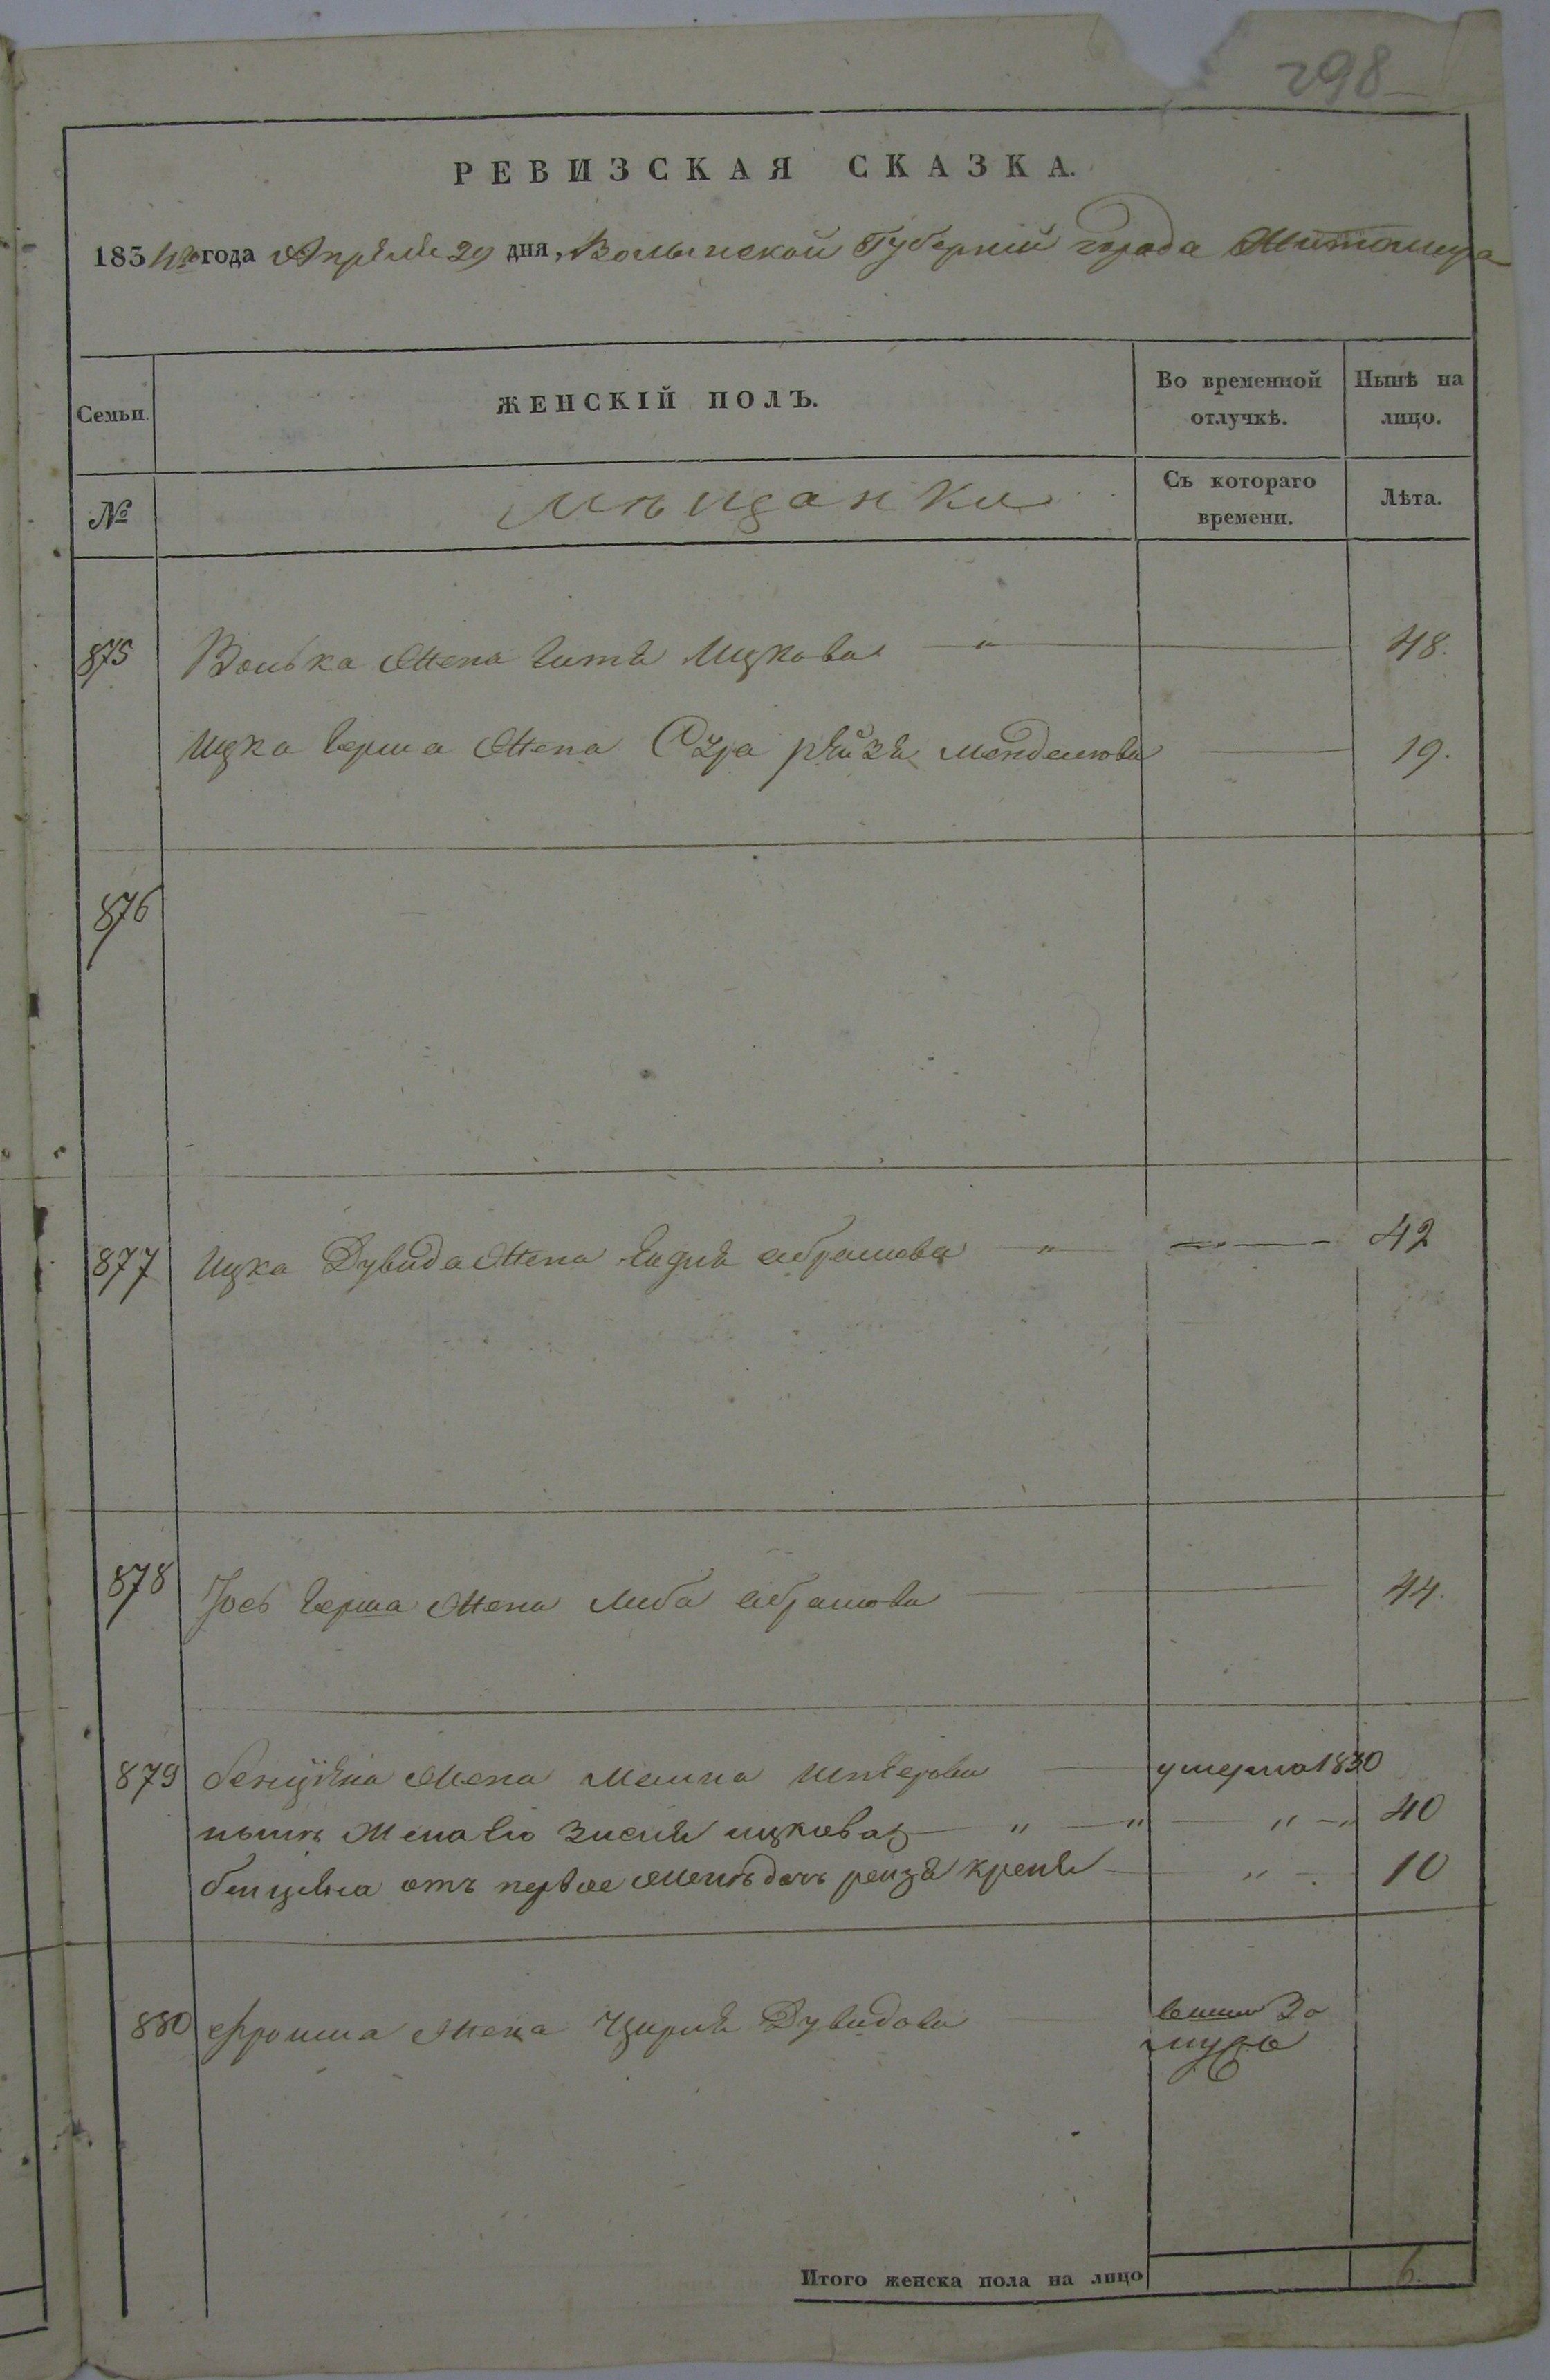 298
РЕВИЗСКАЯ СКАЗКА.
1834го года Апреля 29 дня, Волынской Губернiй города Житомира
Семьи. ЖЕНСКIЙ ПОЛЪ. Во временной отлучкѣ. Нынѣ на лицо.
№ мѣщанки Съ котораго времени. Лѣта.
875 Волька Жена Гитя Ицкова " 48.
Ицка Герша Жена Сура рейзя менделиова 19.
876
877 Ицка Дувида Жена абрамова " 42
878 Iось Герша Жена Либа абрамова 44.
879 Бенцiена Жена Малка умерла 1830
Жена Его Зисля ицкова " " " " 40
бенциена отъ первое Жены дочь рейзя креня " 10
880 Фроима Жена Цирля Дувидова вышла За
мужъ
Итого женска пола на лицо 6.